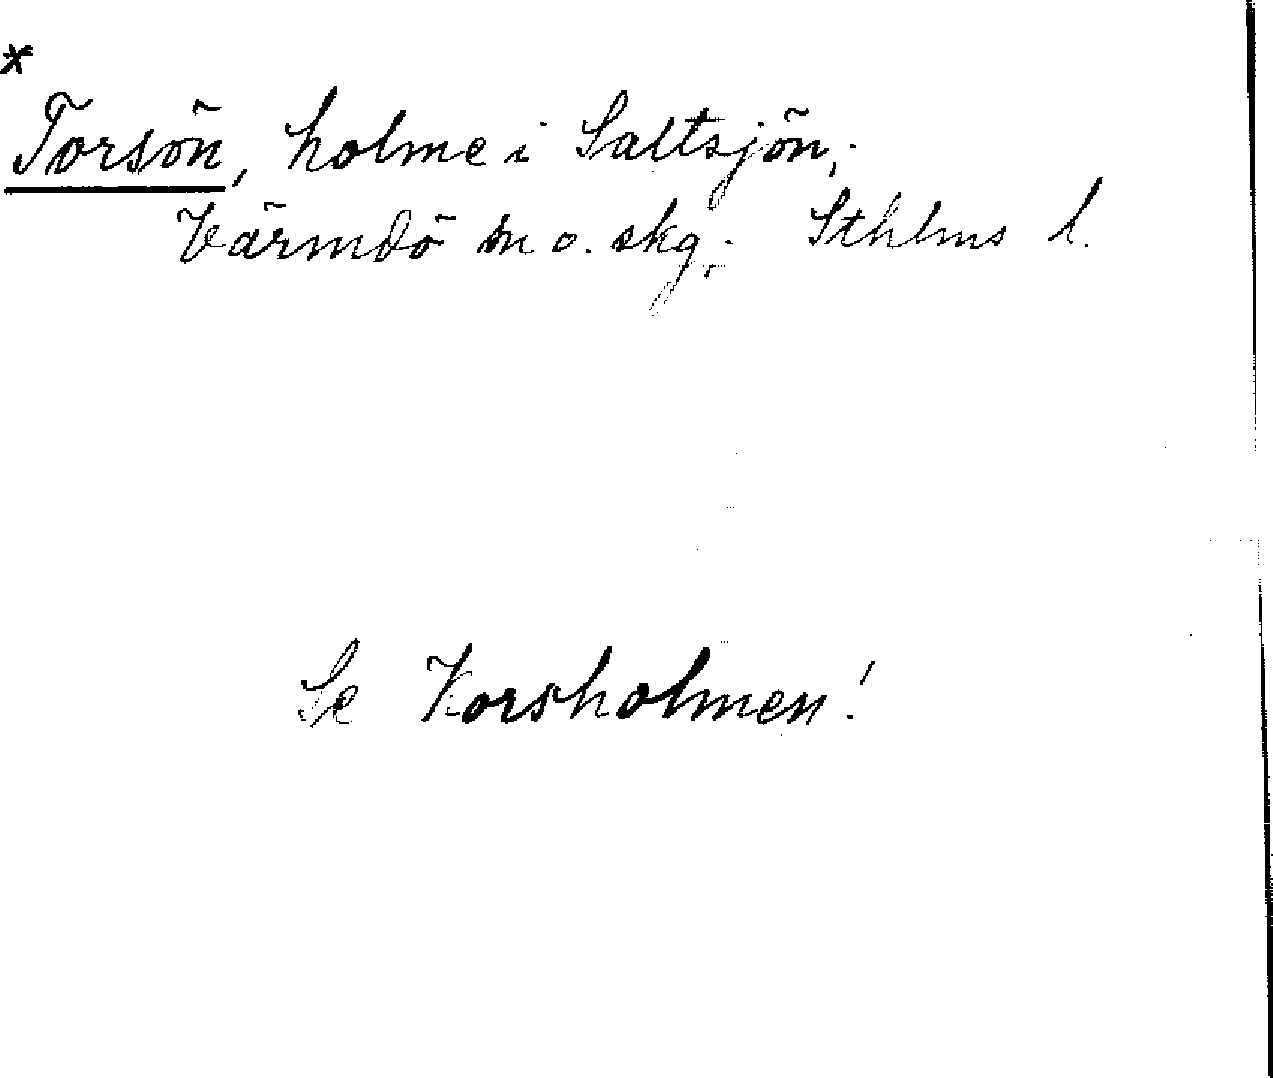 *
Torsön, holme i Saltsjön,
Värmdö sn o. skg. Sthlms l.
Se Korsholmen!